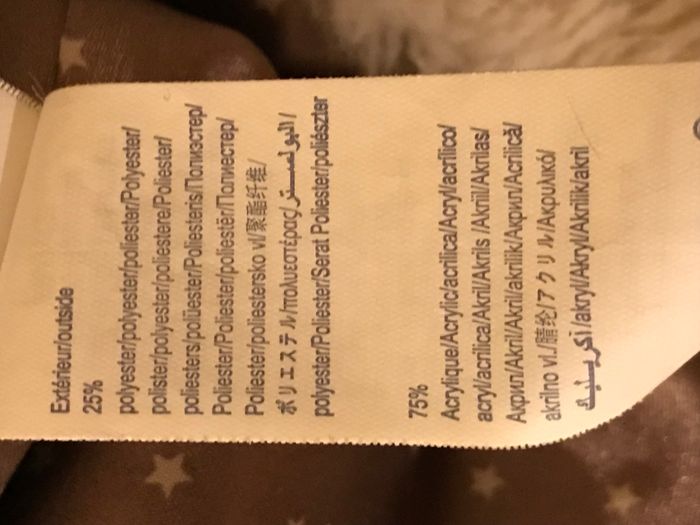 Extérieur/outside
25%
polyester/polyester/poliester/Polyester/
polister/polyester/poliestere/Poliester/
poliesters/polüester/Poliesteris/Полиэстер/
Poliester/Poliester/poliestër/Полиестер/
Poliester/poliestersko vl/聚酯纤维/
ポリエステル/πολυεστέρας/البوليستر/
polyester/Poliester/Serat Poliester/poliészter
75%
Acrylique/Acrylic/acrilica/Acryl/acrílico/
acryl/acrílica/Akril/Akrils /Akrüll/Akrilas/
Акрил/Akril/Akril/akrilik/Акрил/Acrilică/
akrilno vl./腈纶/アクリル/Ακρυλικό/
أكريليك/akryl/Akryl/Akrilik/akril